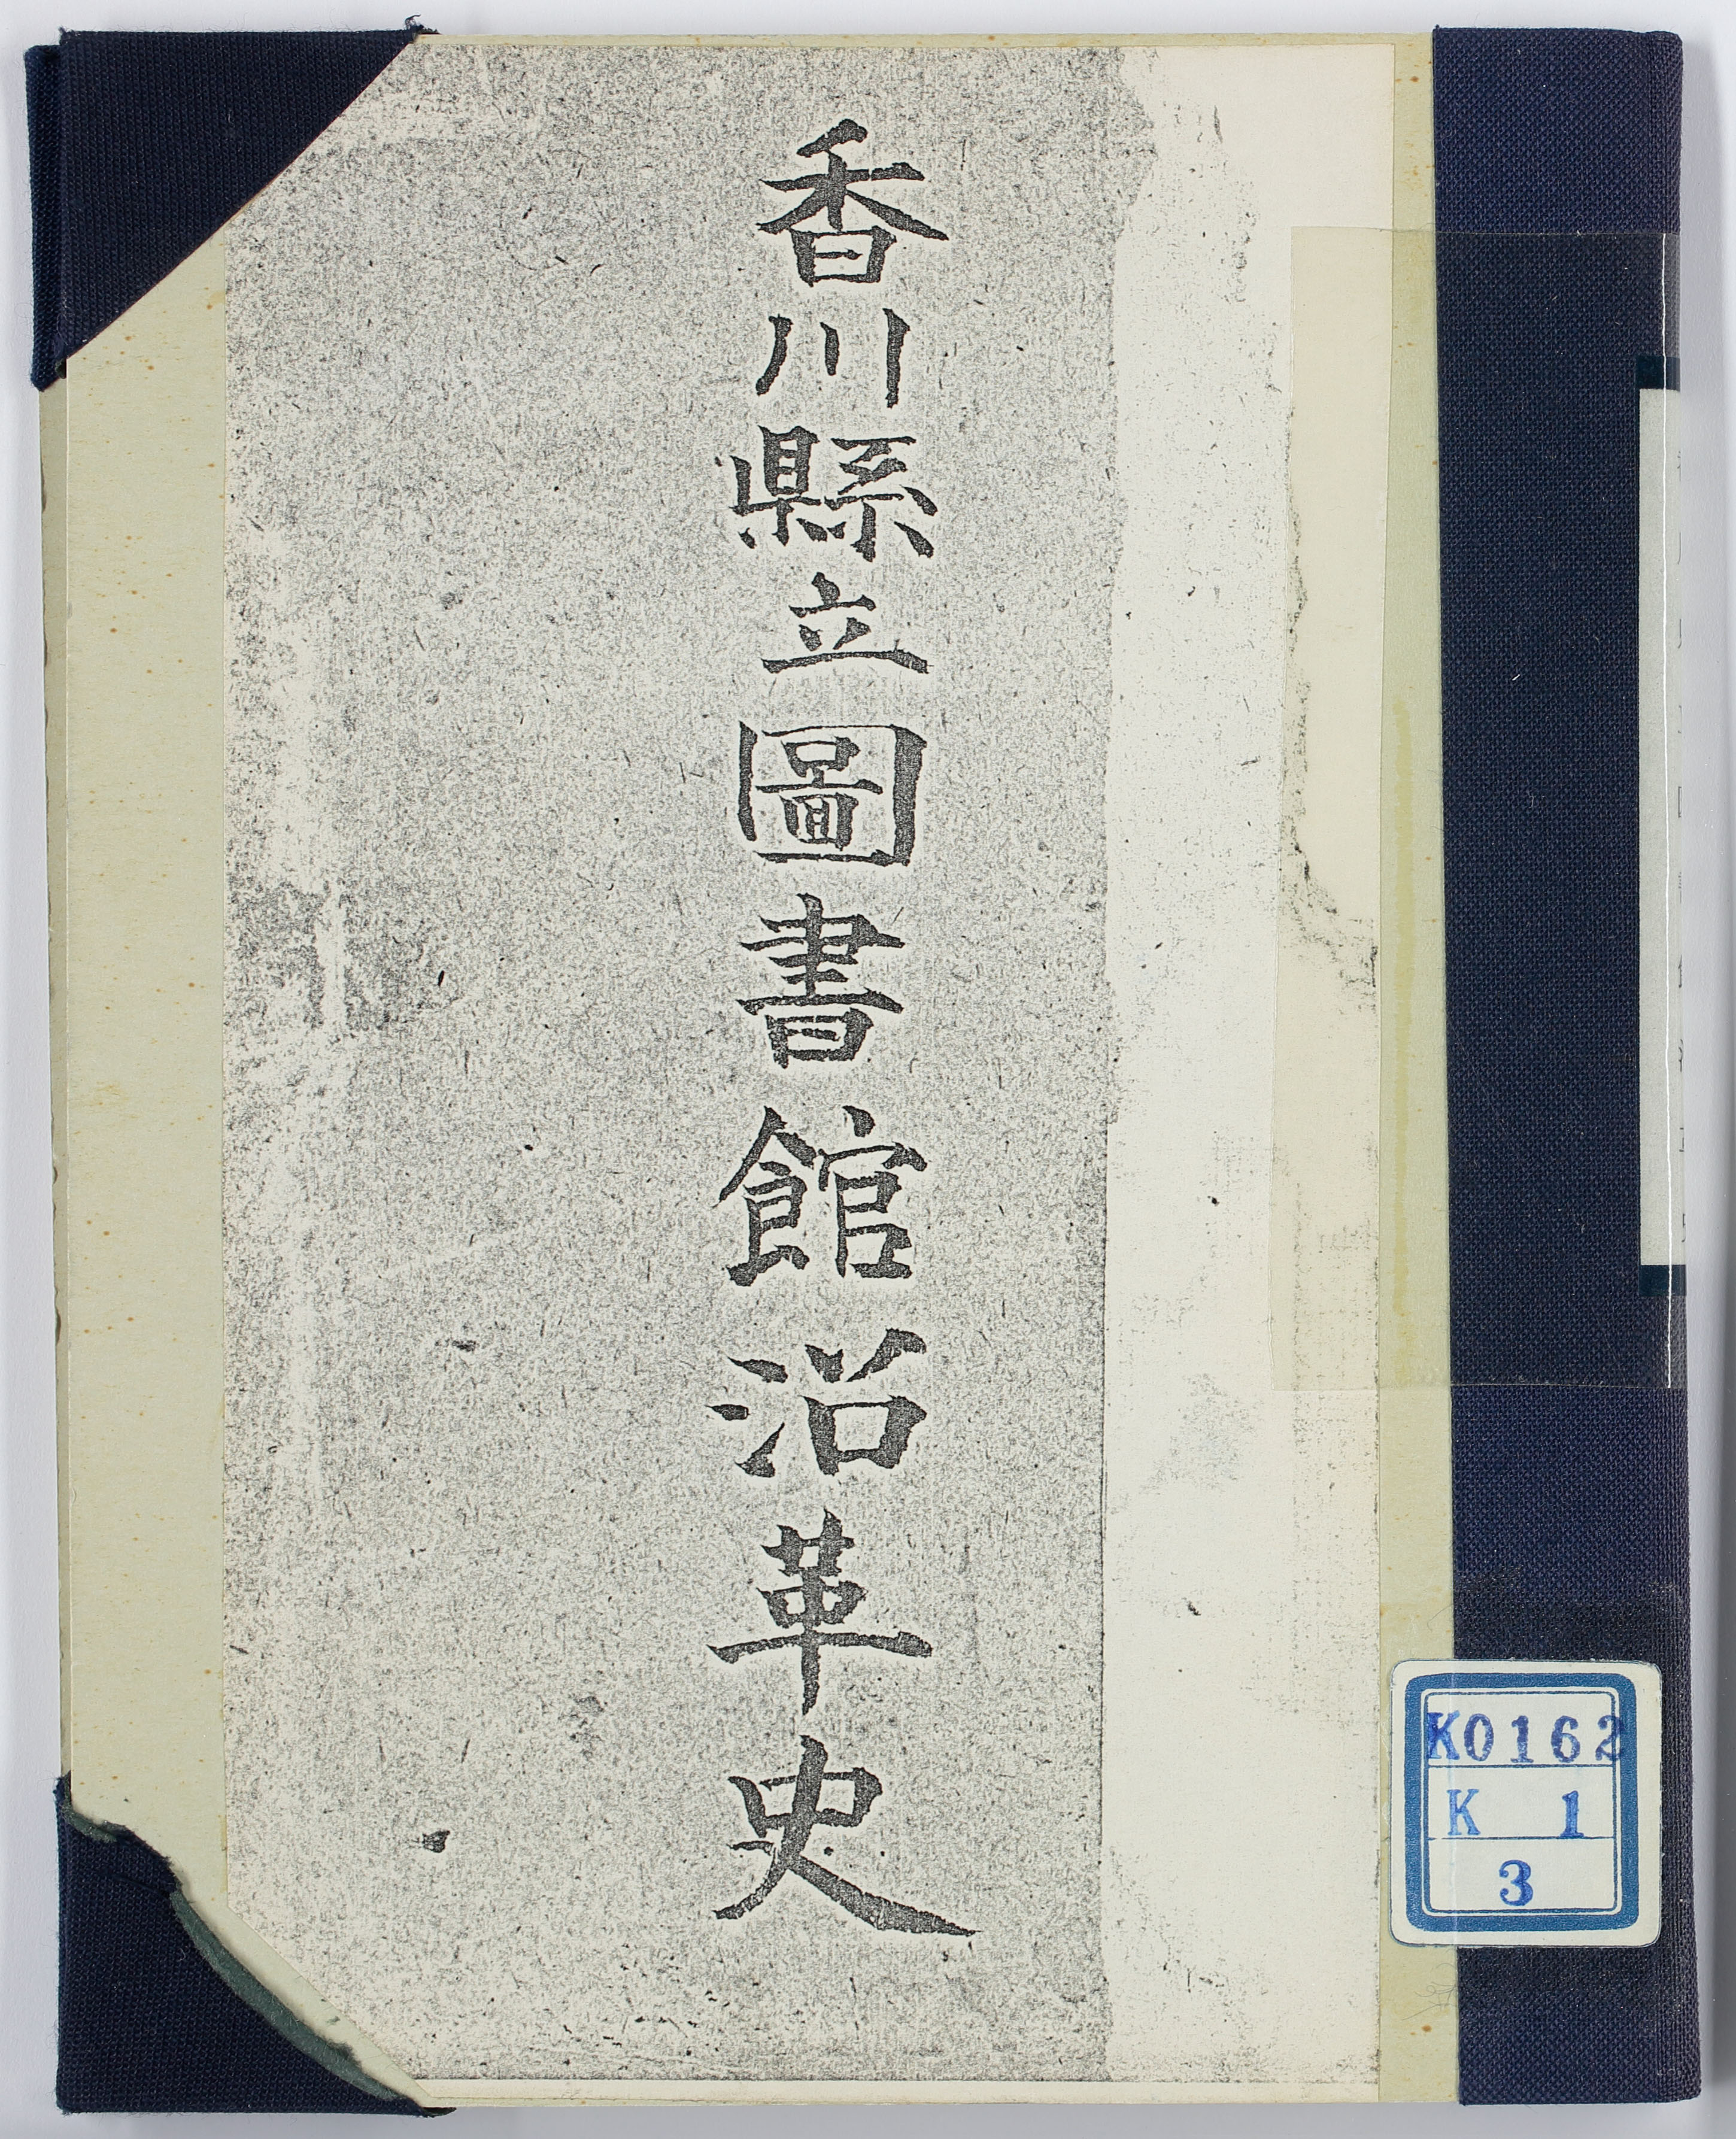 香川縣立圖書館沿革史
K0162
K 1
3